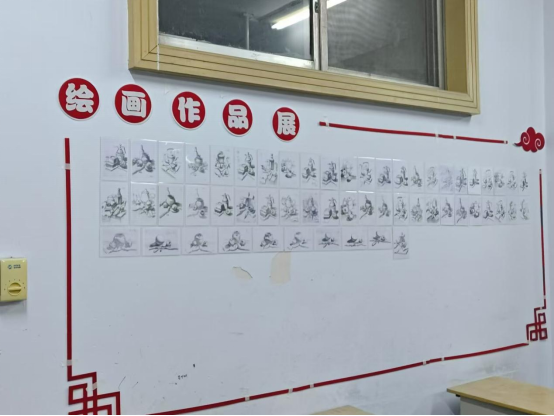 绘画作品展